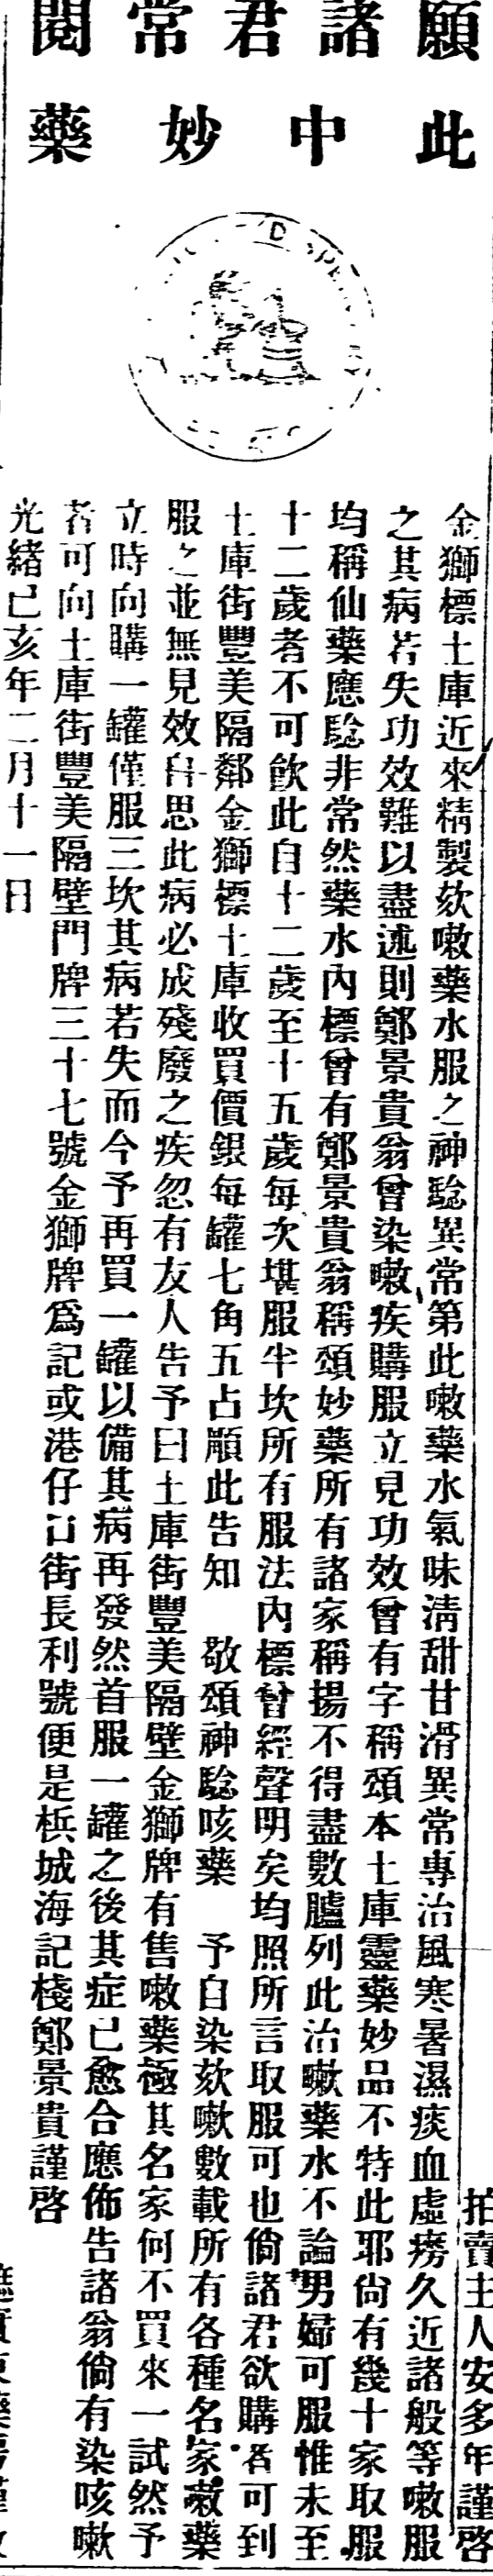 願諸君常閱
此中妙藥
拍賣主人安多年謹啓
金獅標土庫近來精製欬嗽藥水服之神騐異常第此嗽藥水氣味清甜甘滑異常專治風寒暑濕痰血虛癆久近諸般等嗽服
之其病若失功效難以盡述則鄭景貴翁曾染嗽疾購服立見功效曾有字稱頌本土庫靈藥妙品不特此耶尙有幾十家取服
均稱仙藥應騐非常然藥水內標曾有鄭景貴翁稱頌妙藥所有諸家稱揚不得盡數臚列此治嗽藥水不論男婦可服惟未至
十二歲者不可飮此自十二歲至十五歲每次堪服半坎所有服法內標曾經聲明矣均照所言取服可也倘諸君欲購者可到
土庫街豐美隔鄰金獅標土庫收買價銀每罐七角五占順此告知 敬頌神騐咳藥 予自染欬嗽數載所有各種名家嗽藥
服之並無見效自思此病必成殘廢之疾忽有友人告予曰土庫街豐美隔壁金獅牌有售嗽藥極其名家何不買來一試然予
立時向購一罐僅服三坎其病若失而今予再買一罐以備其病再發然首服一罐之後其症已愈合應佈告諸翁倘有染咳嗽
者可向土庫街豐美隔壁門牌三十七號金獅牌爲記或港仔口街長利號便是梹城海記棧鄭景貴謹啓
光緒己亥年二月十一日